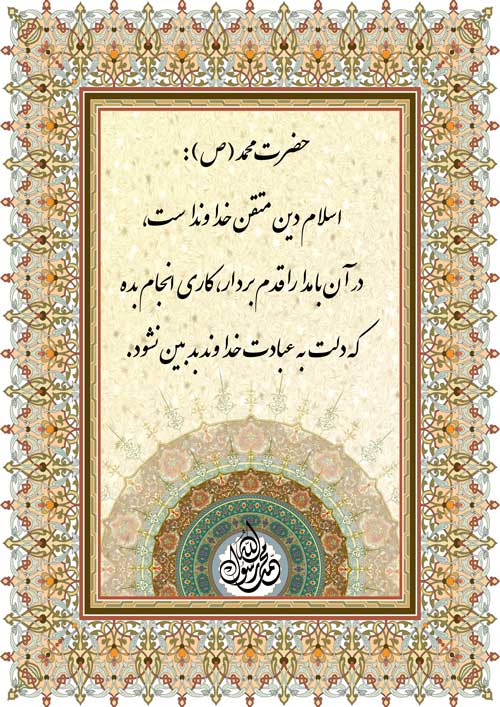 حضرت محمد (ص):
اسلام دین متقن خداوند است،
در آن با مدارا قدم بردار، کاری انجام بده
که دلت به عبادت خداوند بدبین نشود.
محمد رسول الله